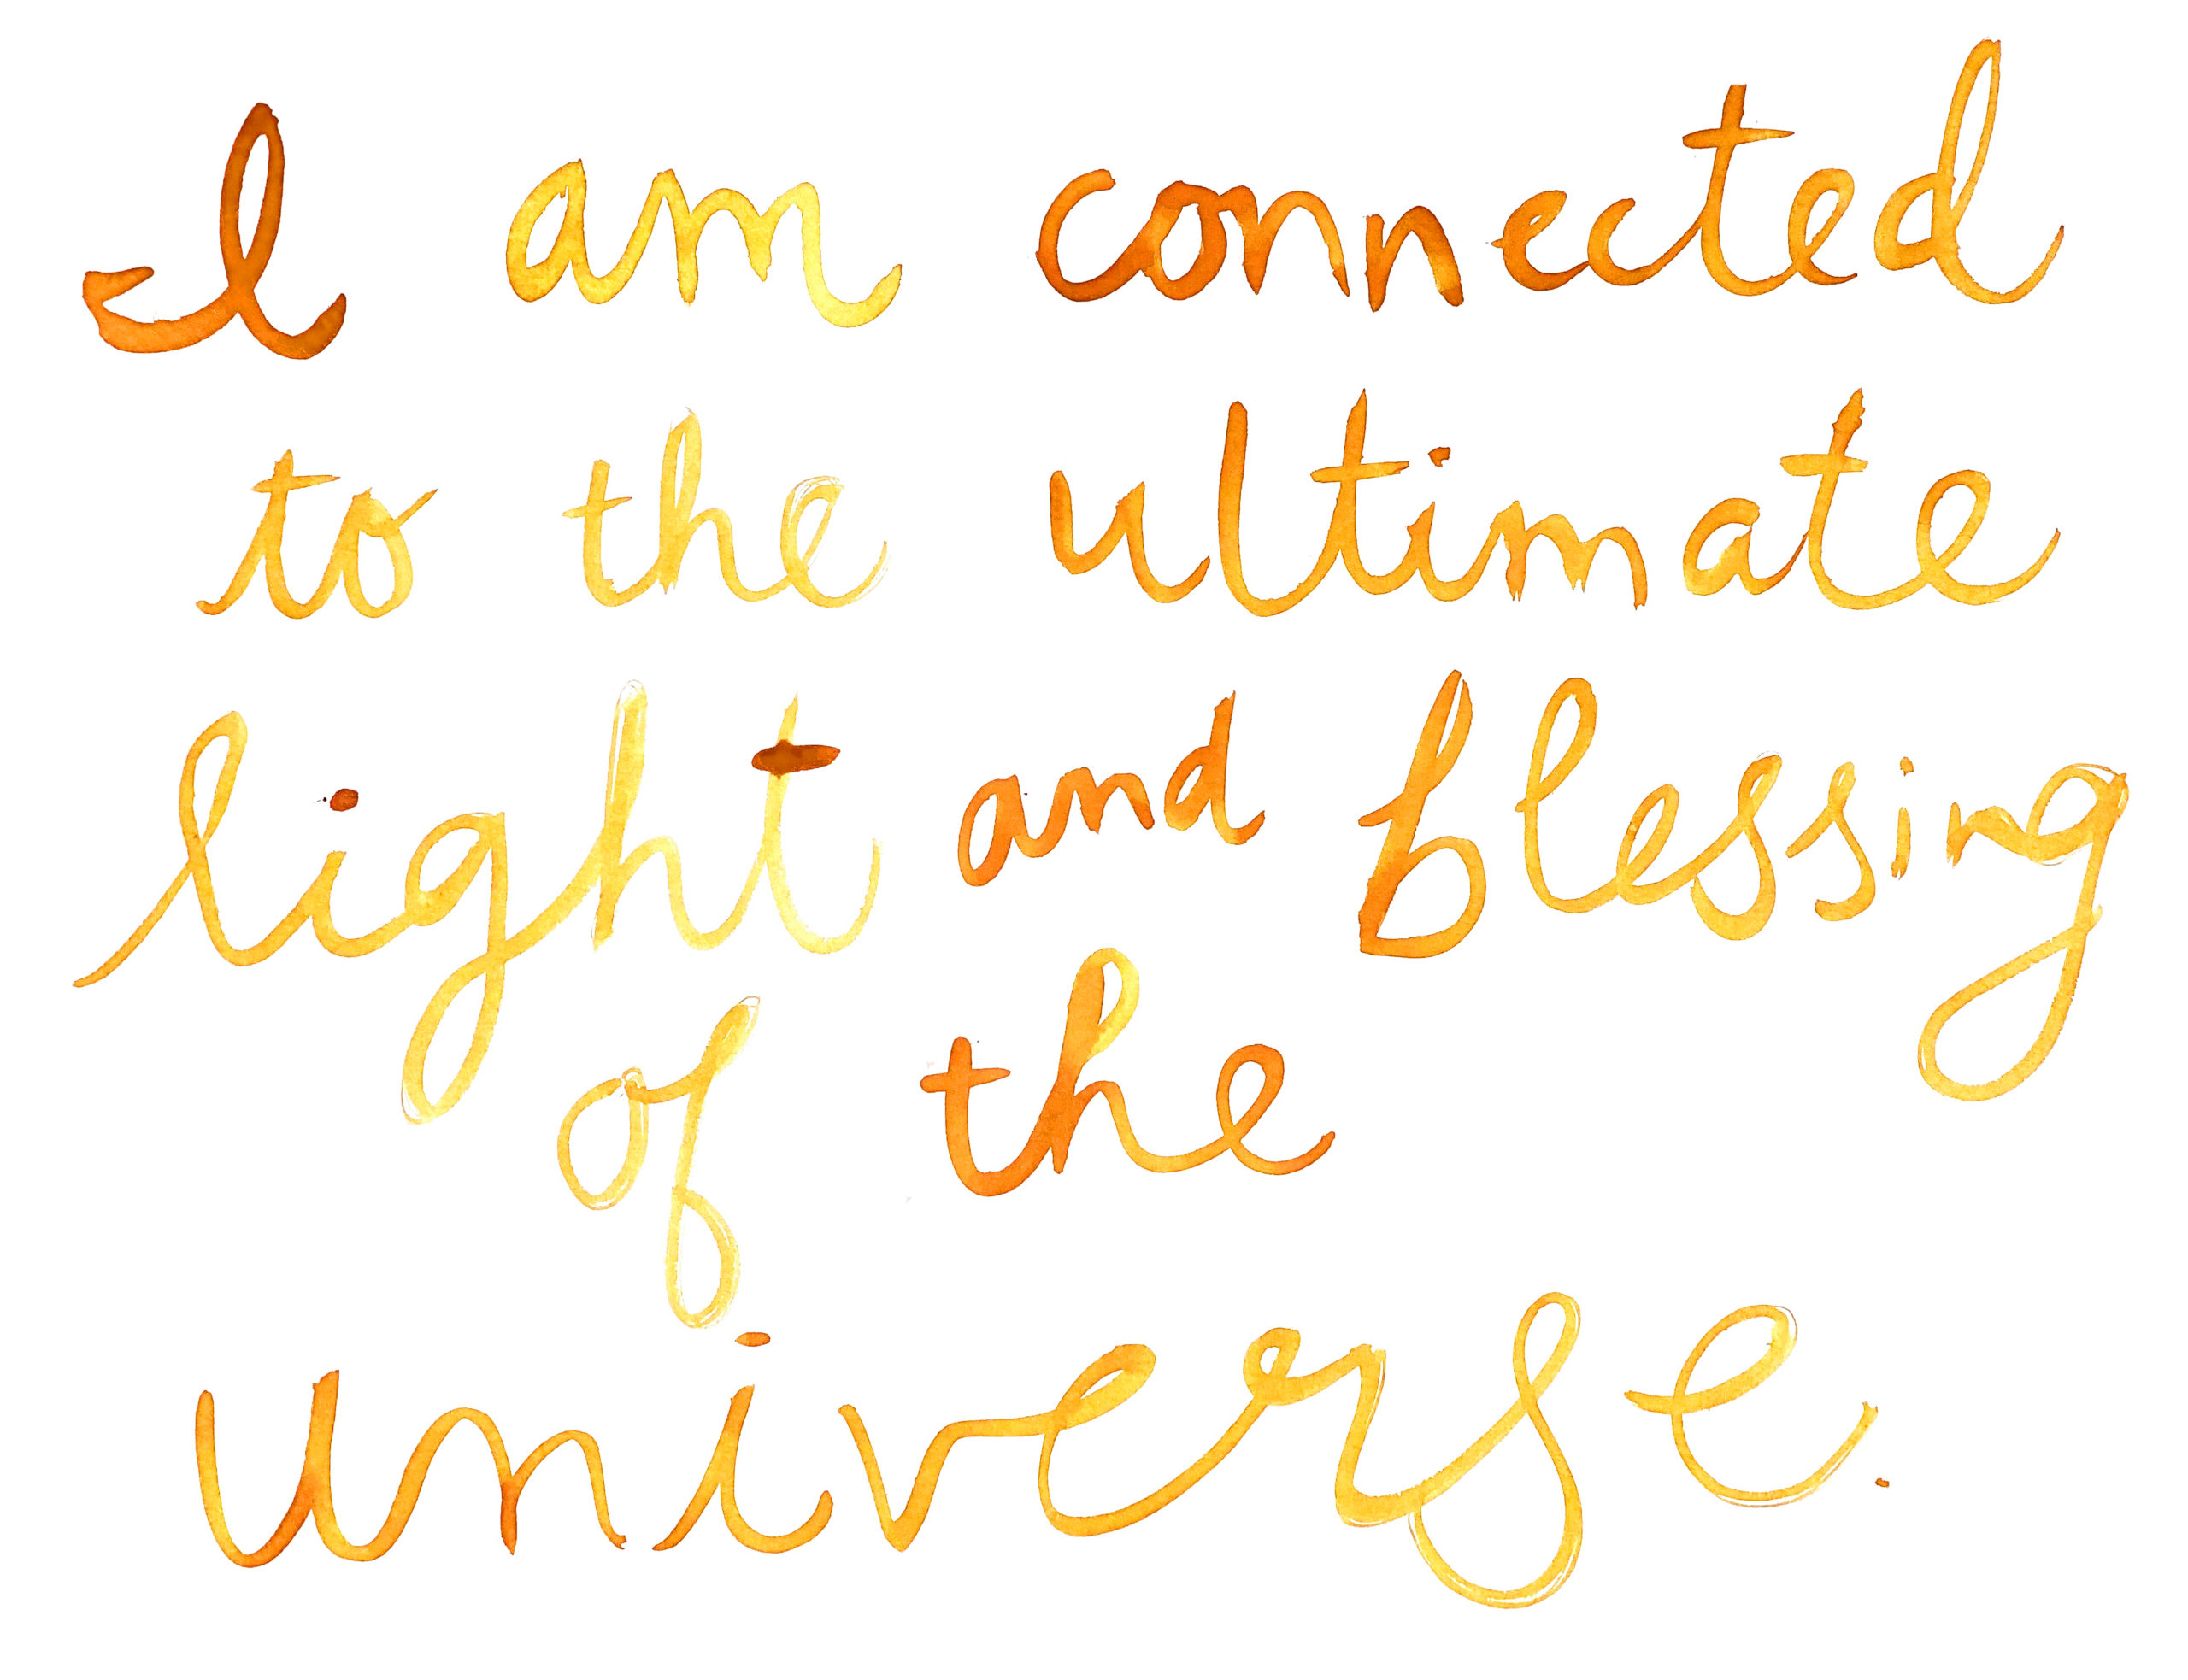 I am connected
to the ultimate
light and blessing
of the
universe.